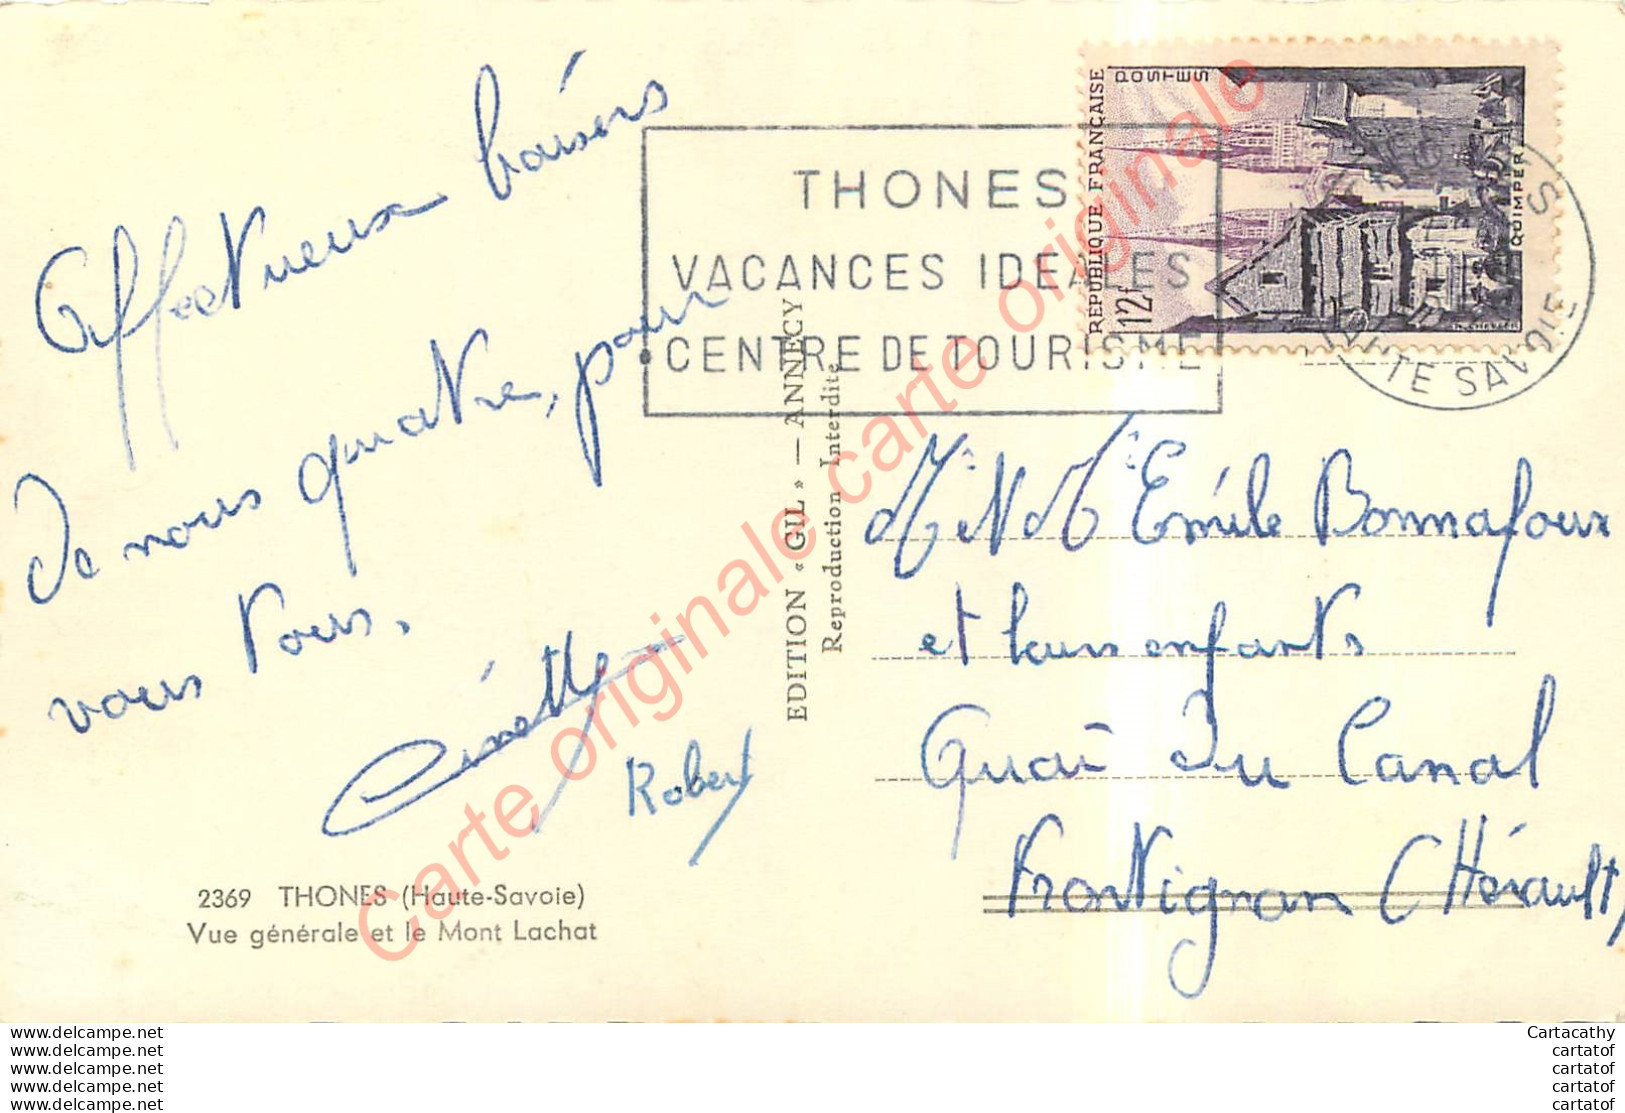 Affectueux baisers
de nous quatre, pour
vous tous.
Ginette
Robert
2369 THONES (Haute-Savoie)
Vue générale et le Mont Lachat
EDITION « GIL » — ANNECY
Reproduction Interdite
THONES
VACANCES IDEALES
CENTRE DE TOURISME
REPUBLIQUE FRANÇAISE
POSTES
12f
QUIMPER
HTE SAVOIE
Mr et Me Emile Bonnafoux
et leurs enfants
Quai du Canal
Frontignan (Hérault)
Carte originale carte originale carte originale
www.delcampe.net
www.delcampe.net
www.delcampe.net
www.delcampe.net
www.delcampe.net
Cartacathy
cartatof
cartatof
cartatof
cartatof